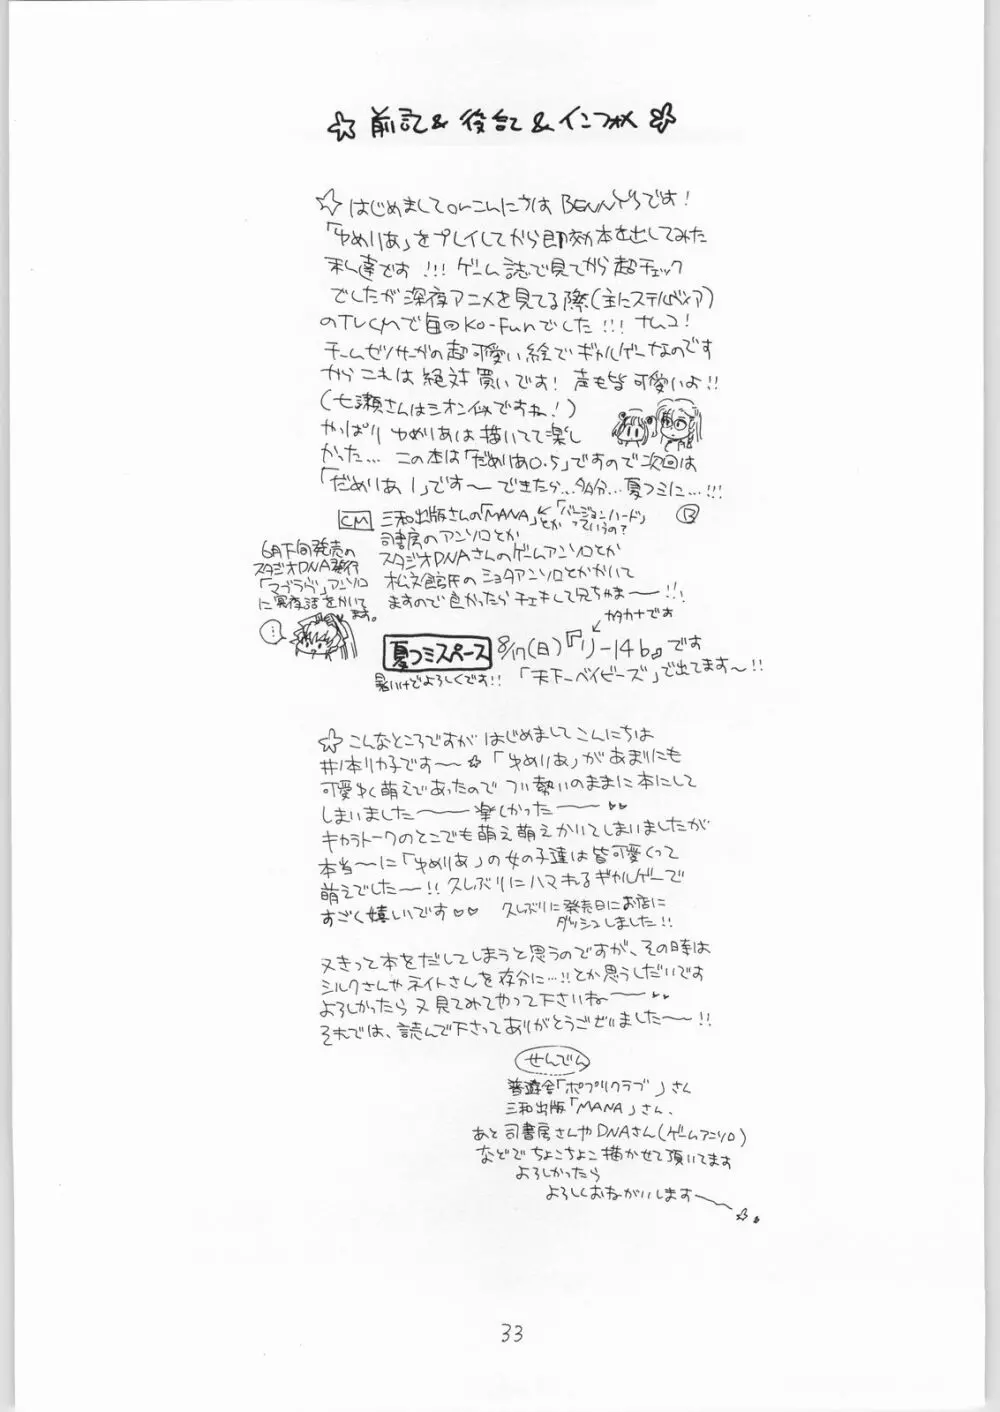 ☆前記&後記&インフォメ☆
☆はじめましてorこんにちは BENNY'Sです!
「ゆめりあ」をプレイしてから即効本を出してみた
私達です!!!ゲーム誌で見てから超チェック
でしたが深夜アニメを見てる際(主にステルヴィア)
のTVCMで毎回Ko-Funでした!!!ナムコ!
チームゼノサーガの超可愛い絵でギャルゲーなのです
からこれは絶対買いです!声も皆可愛いよ!!
(七瀬さんはシオン似ですね!)
やっぱりゆめりあは描いてて楽し
かった…この本は「だめりあ0.5」ですので次回は
「だめりあ1」です〜できたら…多分…夏コミに…!!!
CM 三和出版さんの「MANA」とか ←「バージョンハード」っていうの?
司書房のアンソロとか
スタジオDNAさんのゲームアンソロとか
松文館氏のショタアンソロとかかいて
ますので良かったらチェキして兄ちゃま〜!!!
6月下旬発売の
スタジオDNA発行
「マブラヴ」アンソロ
に冥夜話をかいて
ます。
…
カタカナです
夏コミスペース 8/17(日)『リ-14b』です
暑いけどよろしくです!! 「天下一ベイビーズ」で出てます〜!!
☆こんなところですがはじめましてこんにちは
井ノ本リカ子です〜☆「ゆめりあ」があまりにも
可愛ゆく萌えであったのでつい勢いのままに本にして
しまいました〜楽しかった〜♥♥
キャラトークのとこでも萌え萌えかいてしまいましたが
本当〜に「ゆめりあ」の女の子達は皆可愛くって
萌えでした〜!!久しぶりにハマれるギャルゲーで
すごく嬉しいです♥♥ 久しぶりに発売日にお店に
ダッシュしました!!
又きって本をだしてしまうと思うのですが、その時は
シルクさんやネイトさんを存分に…!!とか思うしだいです
よろしかったら又見てみてやって下さいね〜♥♥
それでは、読んで下さってありがとうございました〜!!
せんでん
普遊舎「ポプリクラブ」さん
三和出版「MANA」さん、
あと司書房さんやDNAさん(ゲームアンソロ)
などでちょこちょこ描かせて頂いてます
よろしかったら
よろしくおねがいします〜☆.
33